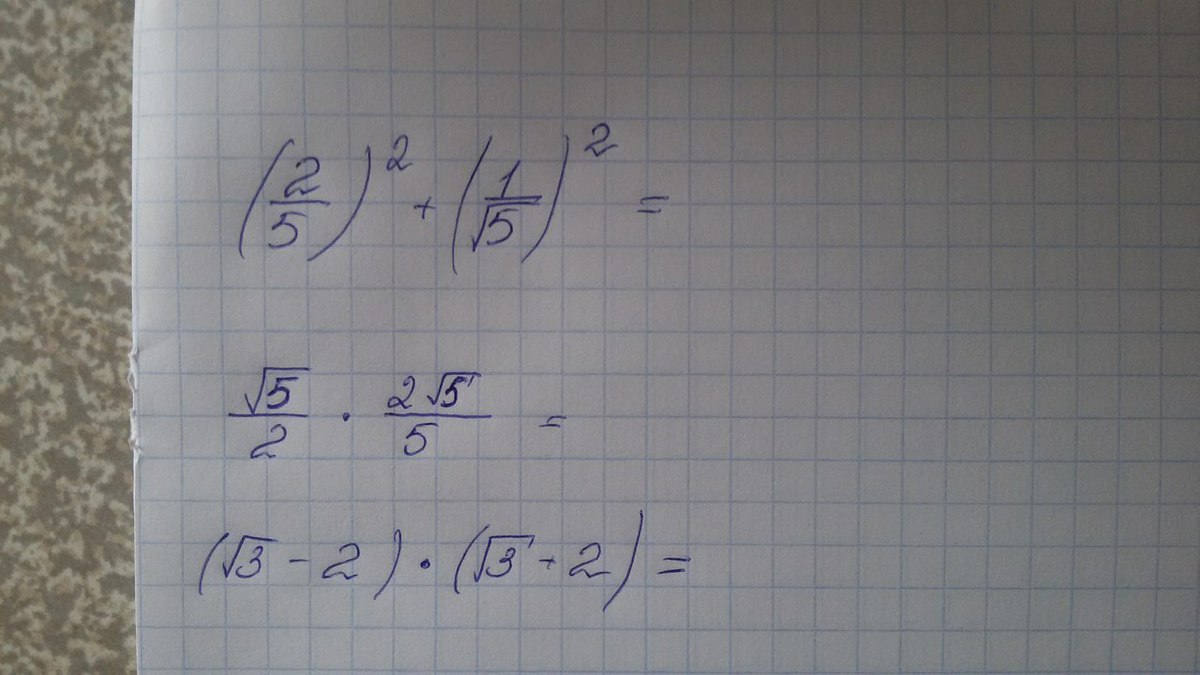 (2/5)² + (1/√5)² =
√5/2 · 2√5/5 =
(√3 - 2) · (√3 + 2) =